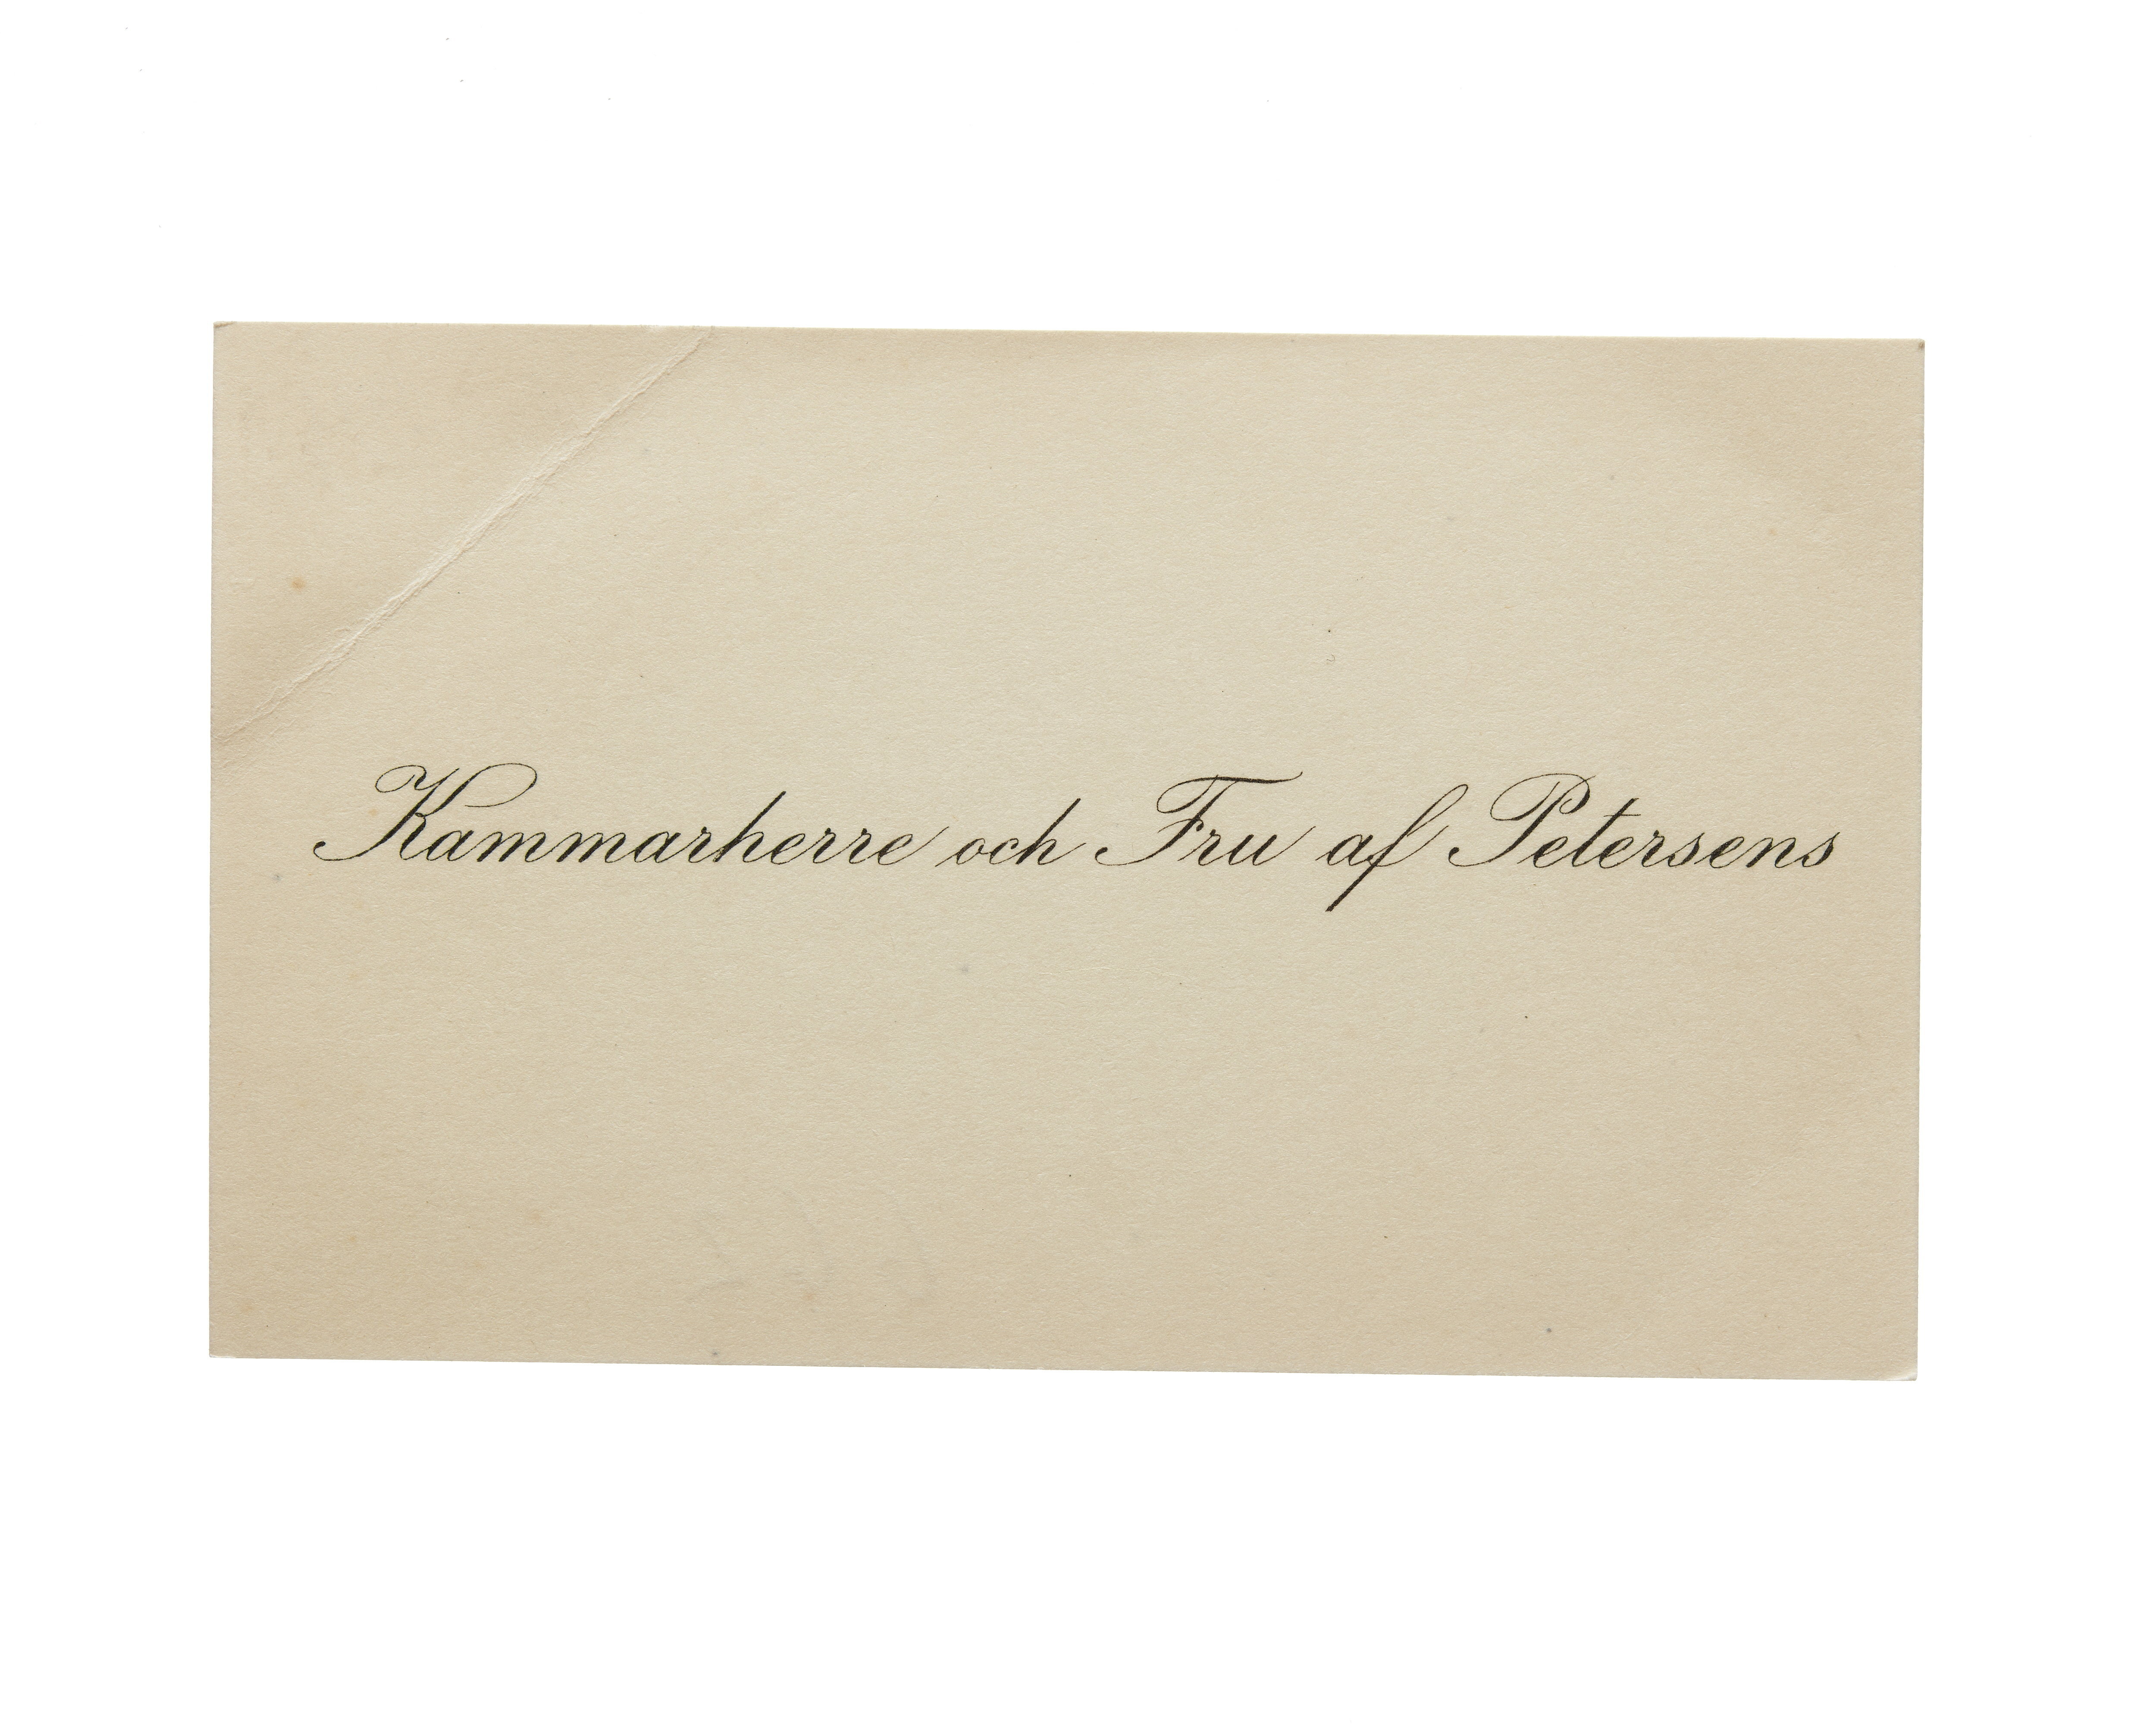 Kammarherre och Fru af Petersens